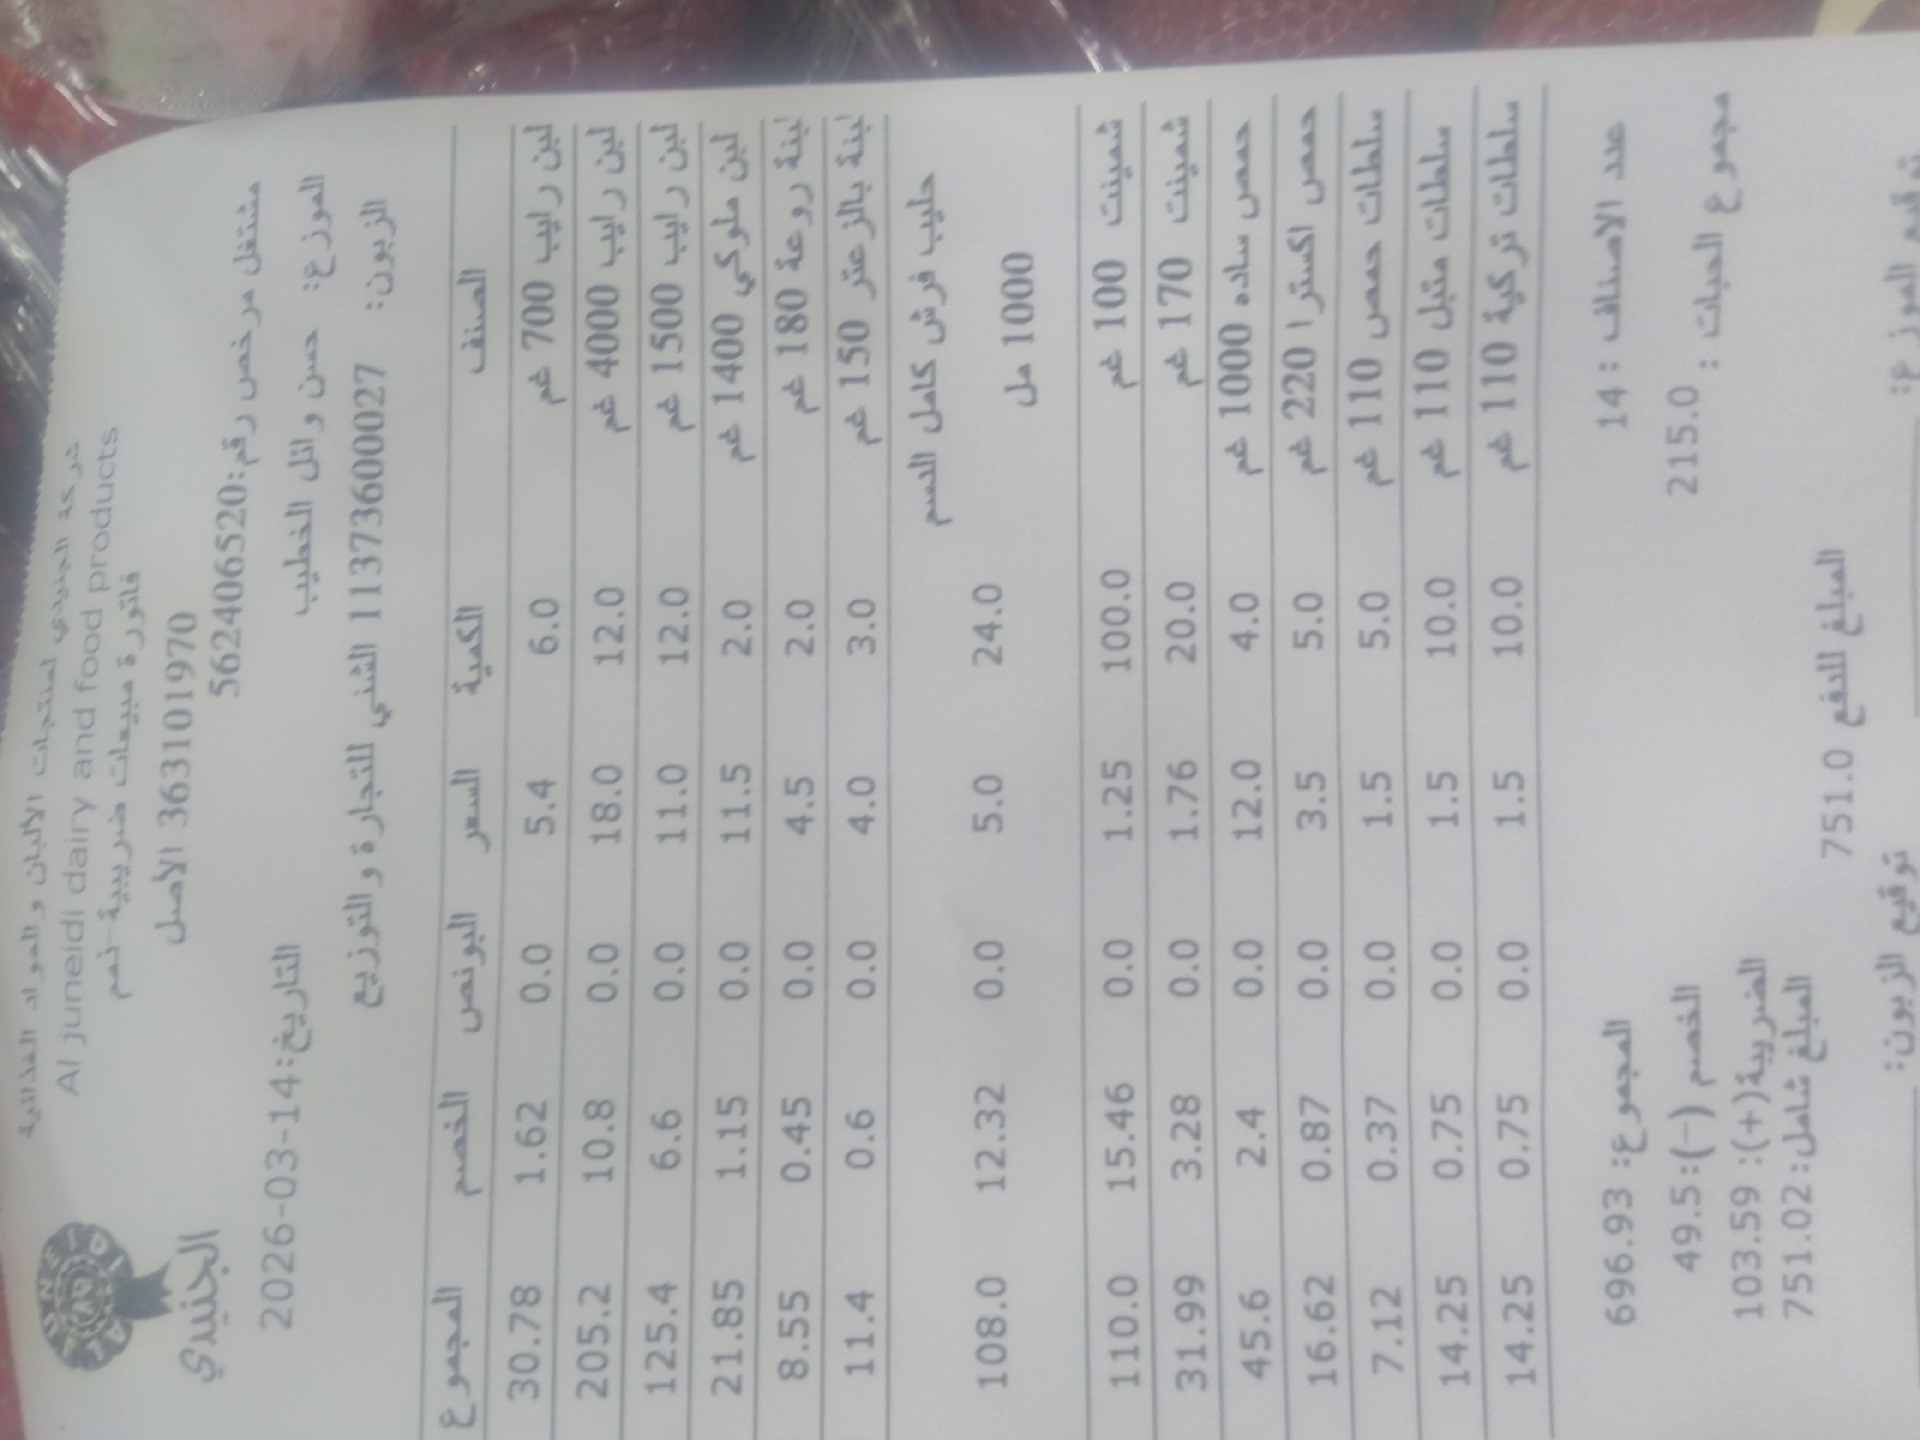 شركة الجنيدي لمنتجات الألبان والمواد الغذائية
Al juneidi dairy and food products
فاتورة مبيعات ضريبية-نعم
363101970 الاصل
الجنيدي
مشتغل مرخص رقم:562406520
الموزع: حسن وائل الخطيب
التاريخ:2026-03-14
الزبون: 11373600027 الشني للتجارة والتوزيع
الصنف الكمية السعر البونص الخصم المجموع
لبن رايب 700 غم 6.0 5.4 0.0 1.62 30.78
لبن رايب 4000 غم 12.0 18.0 0.0 10.8 205.2
لبن رايب 1500 غم 12.0 11.0 0.0 6.6 125.4
لبن ملوكي 1400 غم 2.0 11.5 0.0 1.15 21.85
لبنة روعة 180 غم 2.0 4.5 0.0 0.45 8.55
لبنة بالزعتر 150 غم 3.0 4.0 0.0 0.6 11.4
حليب فرش كامل الدسم
1000 مل 24.0 5.0 0.0 12.32 108.0
شمينت 100 غم 100.0 1.25 0.0 15.46 110.0
شمينت 170 غم 20.0 1.76 0.0 3.28 31.99
حمص ساده 1000 غم 4.0 12.0 0.0 2.4 45.6
حمص اكسترا 220 غم 5.0 3.5 0.0 0.87 16.62
سلطات حمص 110 غم 5.0 1.5 0.0 0.37 7.12
سلطات متبل 110 غم 10.0 1.5 0.0 0.75 14.25
سلطات تركية 110 غم 10.0 1.5 0.0 0.75 14.25
عدد الاصناف : 14 المجموع: 696.93
مجموع الحبات : 215.0 الخصم (-):49.5
الضريبة(+): 103.59
المبلغ شامل:751.02
المبلغ للدفع 751.0
توقيع الموزع: توقيع الزبون: